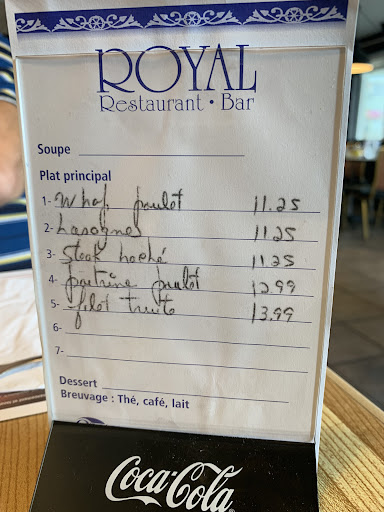 ROYAL
Restaurant • Bar
Soupe
Plat principal
1- Whop. poulet 11.25
2- Lasagne 11.25
3- Steak haché 11.25
4- poitrine poulet 12.99
5- filet truite 13.99
6-
7-
Dessert
Breuvage : Thé, café, lait
Coca-Cola